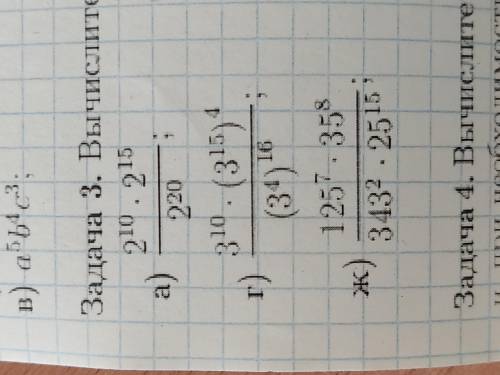 в) a⁵b⁴c³;
Задача 3. Вычислите
а) \frac{2^{10} \cdot 2^{15}}{2^{20}};
г) \frac{3^{10} \cdot (3^{15})^4}{(3^4)^{16}};
ж) \frac{125^7 \cdot 35^8}{343^2 \cdot 25^{15}};
Задача 4. Вычислите